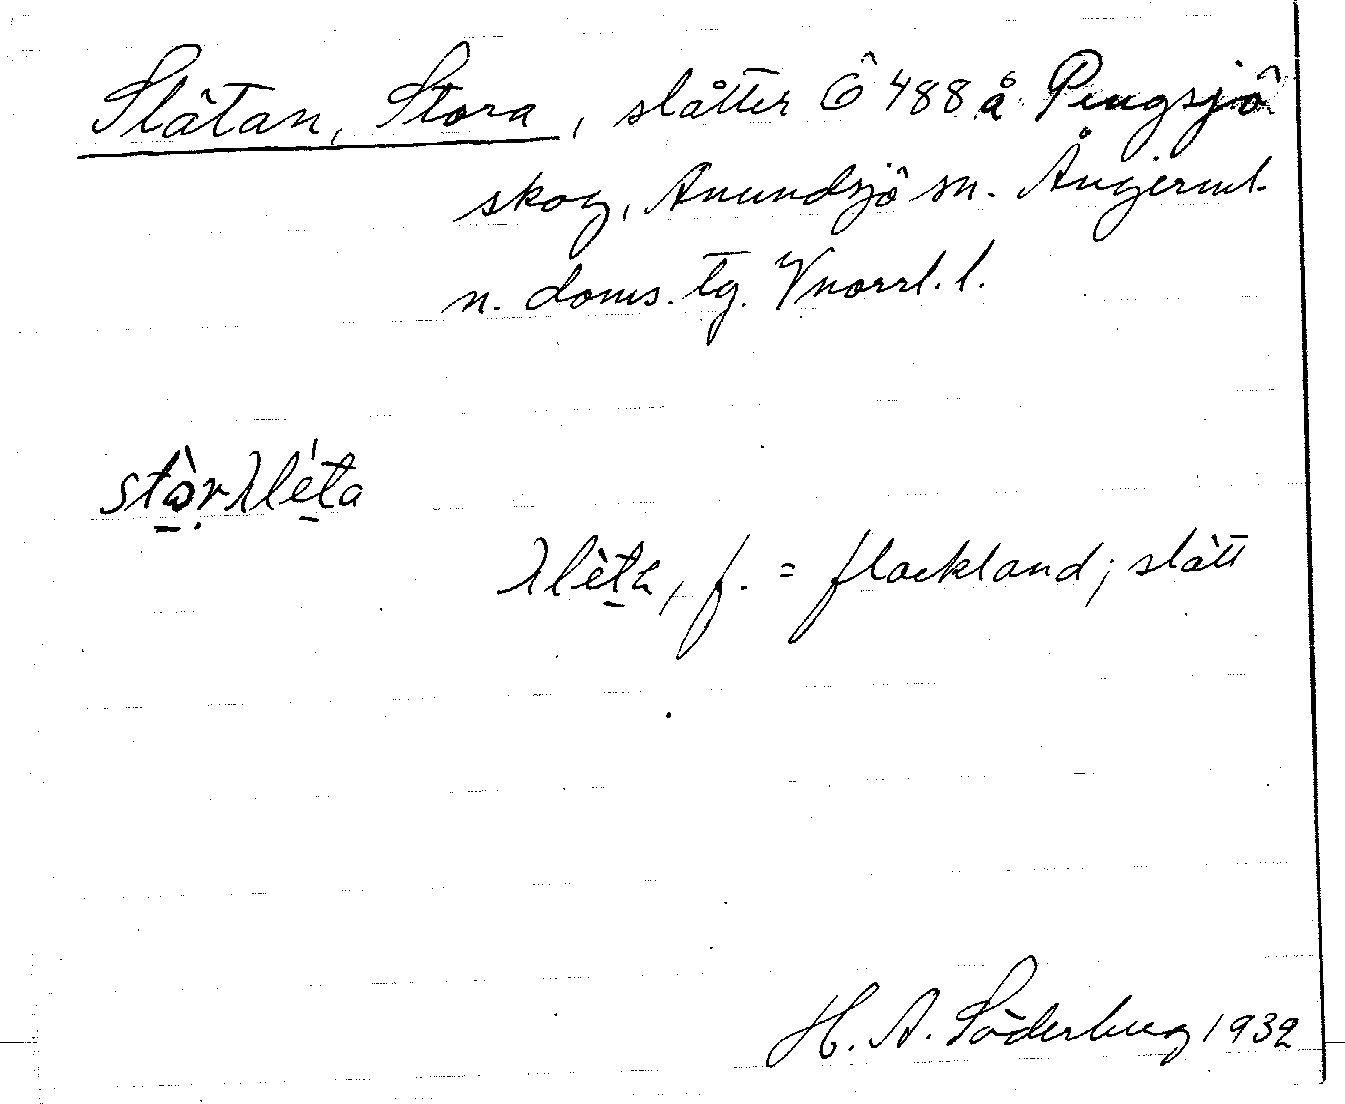 Slätan, Stora, slåtter Ö 488 å Pengsjö
skog, Anundsjö sn. Ångerml.
n. doms. tg. Vnorrl. l.
stò̱ṛλlé̱ta
λlè̱ta, f. = flackland; slätt
H. A. Söderberg 1932